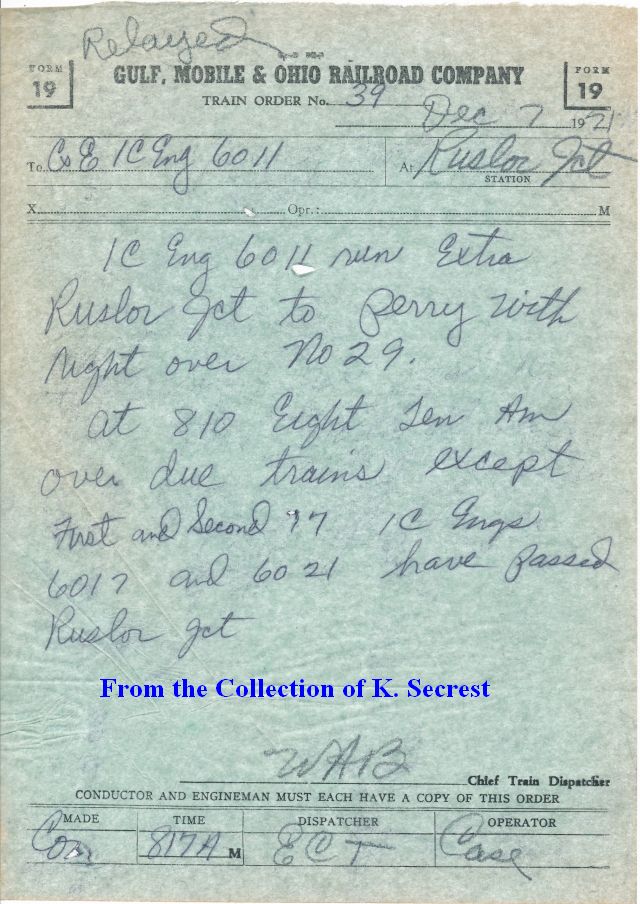 Relayed
FORM 19
GULF, MOBILE & OHIO RAILROAD COMPANY
FORM 19
TRAIN ORDER No. 39
Dec 7 1971
To C&E IC Eng 6011 At Ruslor Jct
STATION
X Opr.: M
IC Eng 6011 run Extra
Ruslor Jct to Perry with
right over No 29.
At 810 Eight Ten Am
over due trains except
First and Second 97 IC Engs
6017 and 6021 have passed
Ruslor Jct
From the Collection of K. Secrest
WAB Chief Train Dispatcher
CONDUCTOR AND ENGINEMAN MUST EACH HAVE A COPY OF THIS ORDER
MADE TIME DISPATCHER OPERATOR
Com 817A M ECT Case